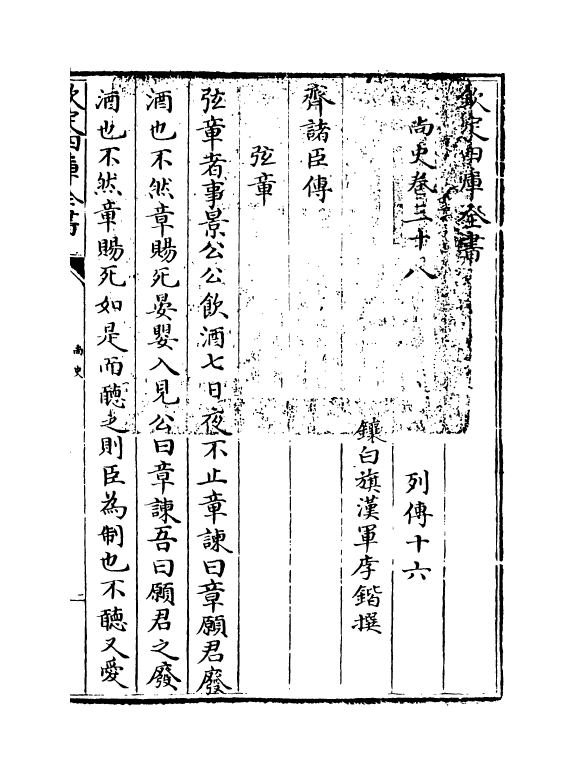 欽定四庫全書
尚史卷三十八　列傳十六
鑲白旗漢軍李鍇撰
齊諸臣傳
弦章
弦章者事景公公飲酒七日夜不止章諫曰章願君廢
酒也不然章賜死晏嬰入見公曰章諫吾曰願君之廢
酒也不然章賜死如是而聽之則臣為制也不聽又愛
欽定四庫全書
尚史